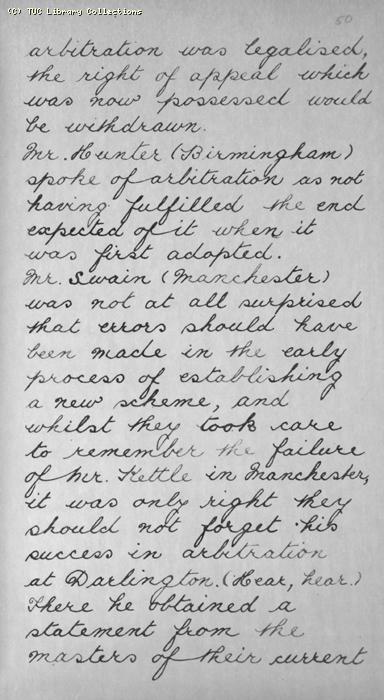 (C) TUC Library Collections
50
arbitration was legalised,
the right of appeal which
was now possessed would
be withdrawn.
Mr. Hunter (Birmingham)
spoke of arbitration as not
having fulfilled the end
expected of it when it
was first adopted.
Mr. Swain (Manchester)
was not at all surprised
that errors should have
been made in the early
process of establishing
a new scheme, and
whilst they took care
to remember the failure
of Mr. Kettle in Manchester,
it was only right they
should not forget his
success in arbitration
at Darlington. (Hear, hear.)
There he obtained a
statement from the
masters of their current